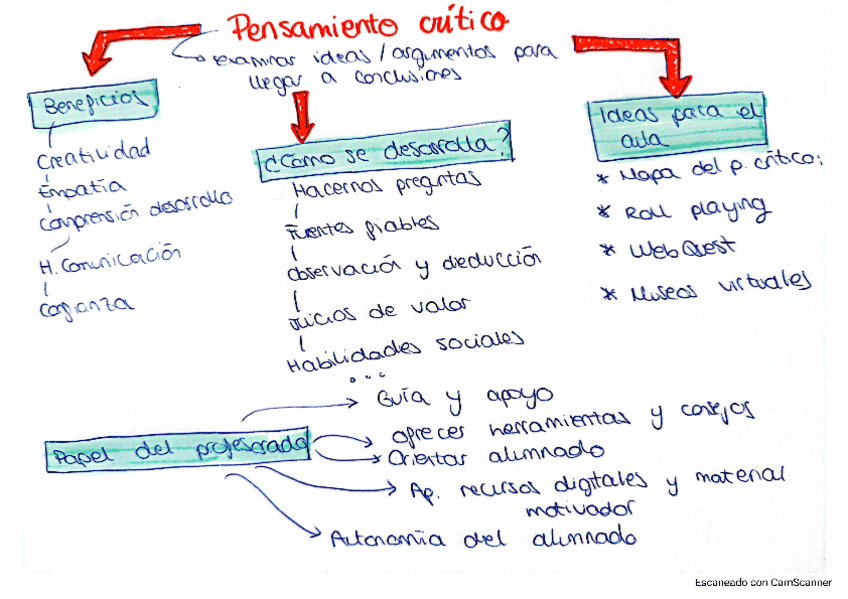 Pensamiento crítico
examinar ideas / argumentos para
llegar a conclusiones
Beneficios
Creatividad
Empatía
Comprensión desarrollo
H. Comunicación
Confianza
¿Cómo se desarrolla?
Hacernos preguntas
Fuentes fiables
Observación y deducción
Juicios de valor
Habilidades sociales
...
Ideas para el
aula
* Mapa del p. crítico:
* Roll playing
* WebQuest
* Museos virtuales
Papel del profesorado
Guía y apoyo
Ofrecer herramientas y consejos
Orientar alumnado
Ap. recursos digitales y material
motivador
Autonomía del alumnado
Escaneado con CamScanner